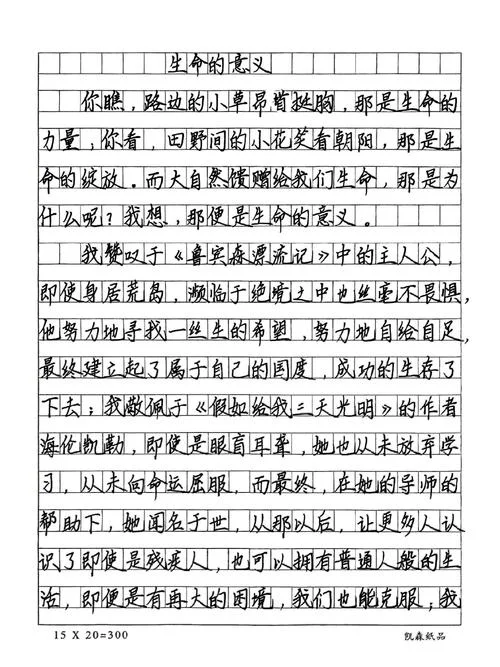 生命的意义
你瞧，路边的小草昂首挺胸，那是生命的
力量；你看，田野间的小花笑看朝阳，那是生
命的绽放。而大自然馈赠给我们生命，那是为
什么呢？我想，那便是生命的意义。
我赞叹于《鲁宾森漂流记》中的主人公，
即使身居荒岛，濒临于绝境之中也丝毫不畏惧，
他努力地寻找一丝生的希望，努力地自给自足，
最终建立起了属于自己的国度，成功的生存了
下去；我敬佩于《假如给我三天光明》的作者
海伦凯勒，即使是眼盲耳聋，她也从未放弃学
习，从未向命运屈服，而最终，在她的导师的
帮助下，她闻名于世，从那以后，让更多人认
识了即使是残疾人，也可以拥有普通人般的生
活，即便是有再大的困境，我们也能克服；我
15 X 20=300
凯森纸品